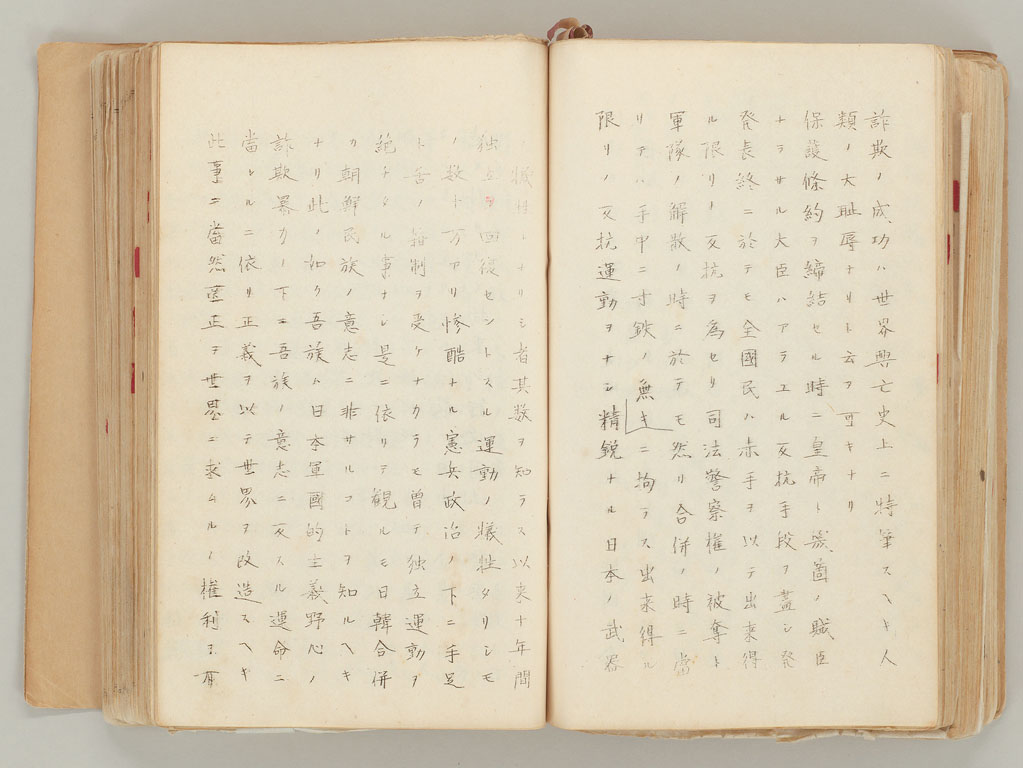 詐欺ノ成功ハ世界興亡史上ニ特筆スヘキ人
類ノ大耻辱ナリト云フ可キナリ
保護條約ヲ締結セル時ニ皇帝ト幾箇ノ賊臣
ナラサル大臣ハアラユル反抗手段ヲ盡シ発
発表終ニ於テモ全國民ハ赤手ヲ以テ出来得
ル限リノ反抗ヲ為セリ司法警察権ノ被奪ト
軍隊ノ解散ノ時ニ於テモ然リ合併ノ時ニ當
リテハ手中ニ寸鉄ノ無キニ拘ラス出来得ル
限リノ反抗運動ヲナシ精鋭ナル日本ノ武器
ノ犠牲トナリシ者其数ヲ知ラス以来十年間
独立ヲ回復セントスル運動ノ犠牲タリシモ
ノ数十万アリ惨酷ナル憲兵政治ノ下ニ手足
ト舌ノ箝制ヲ受ケナカラモ曽テ独立運動ヲ
絶チタル事ナシ是ニ依リテ観ルモ日韓合併
カ朝鮮民族ノ意志ニ非サルコトヲ知ルヘキ
ナリ此ノ如ク吾族ハ日本軍國的主義野心ノ
詐欺暴力ノ下ニ吾族ノ意志ニ反スル運命ニ
當レルニ依リ正義ヲ以テ世界ヲ改造スヘキ
此事ニ當然匡正ヲ世界ニ求ムルノ權利ヲ有